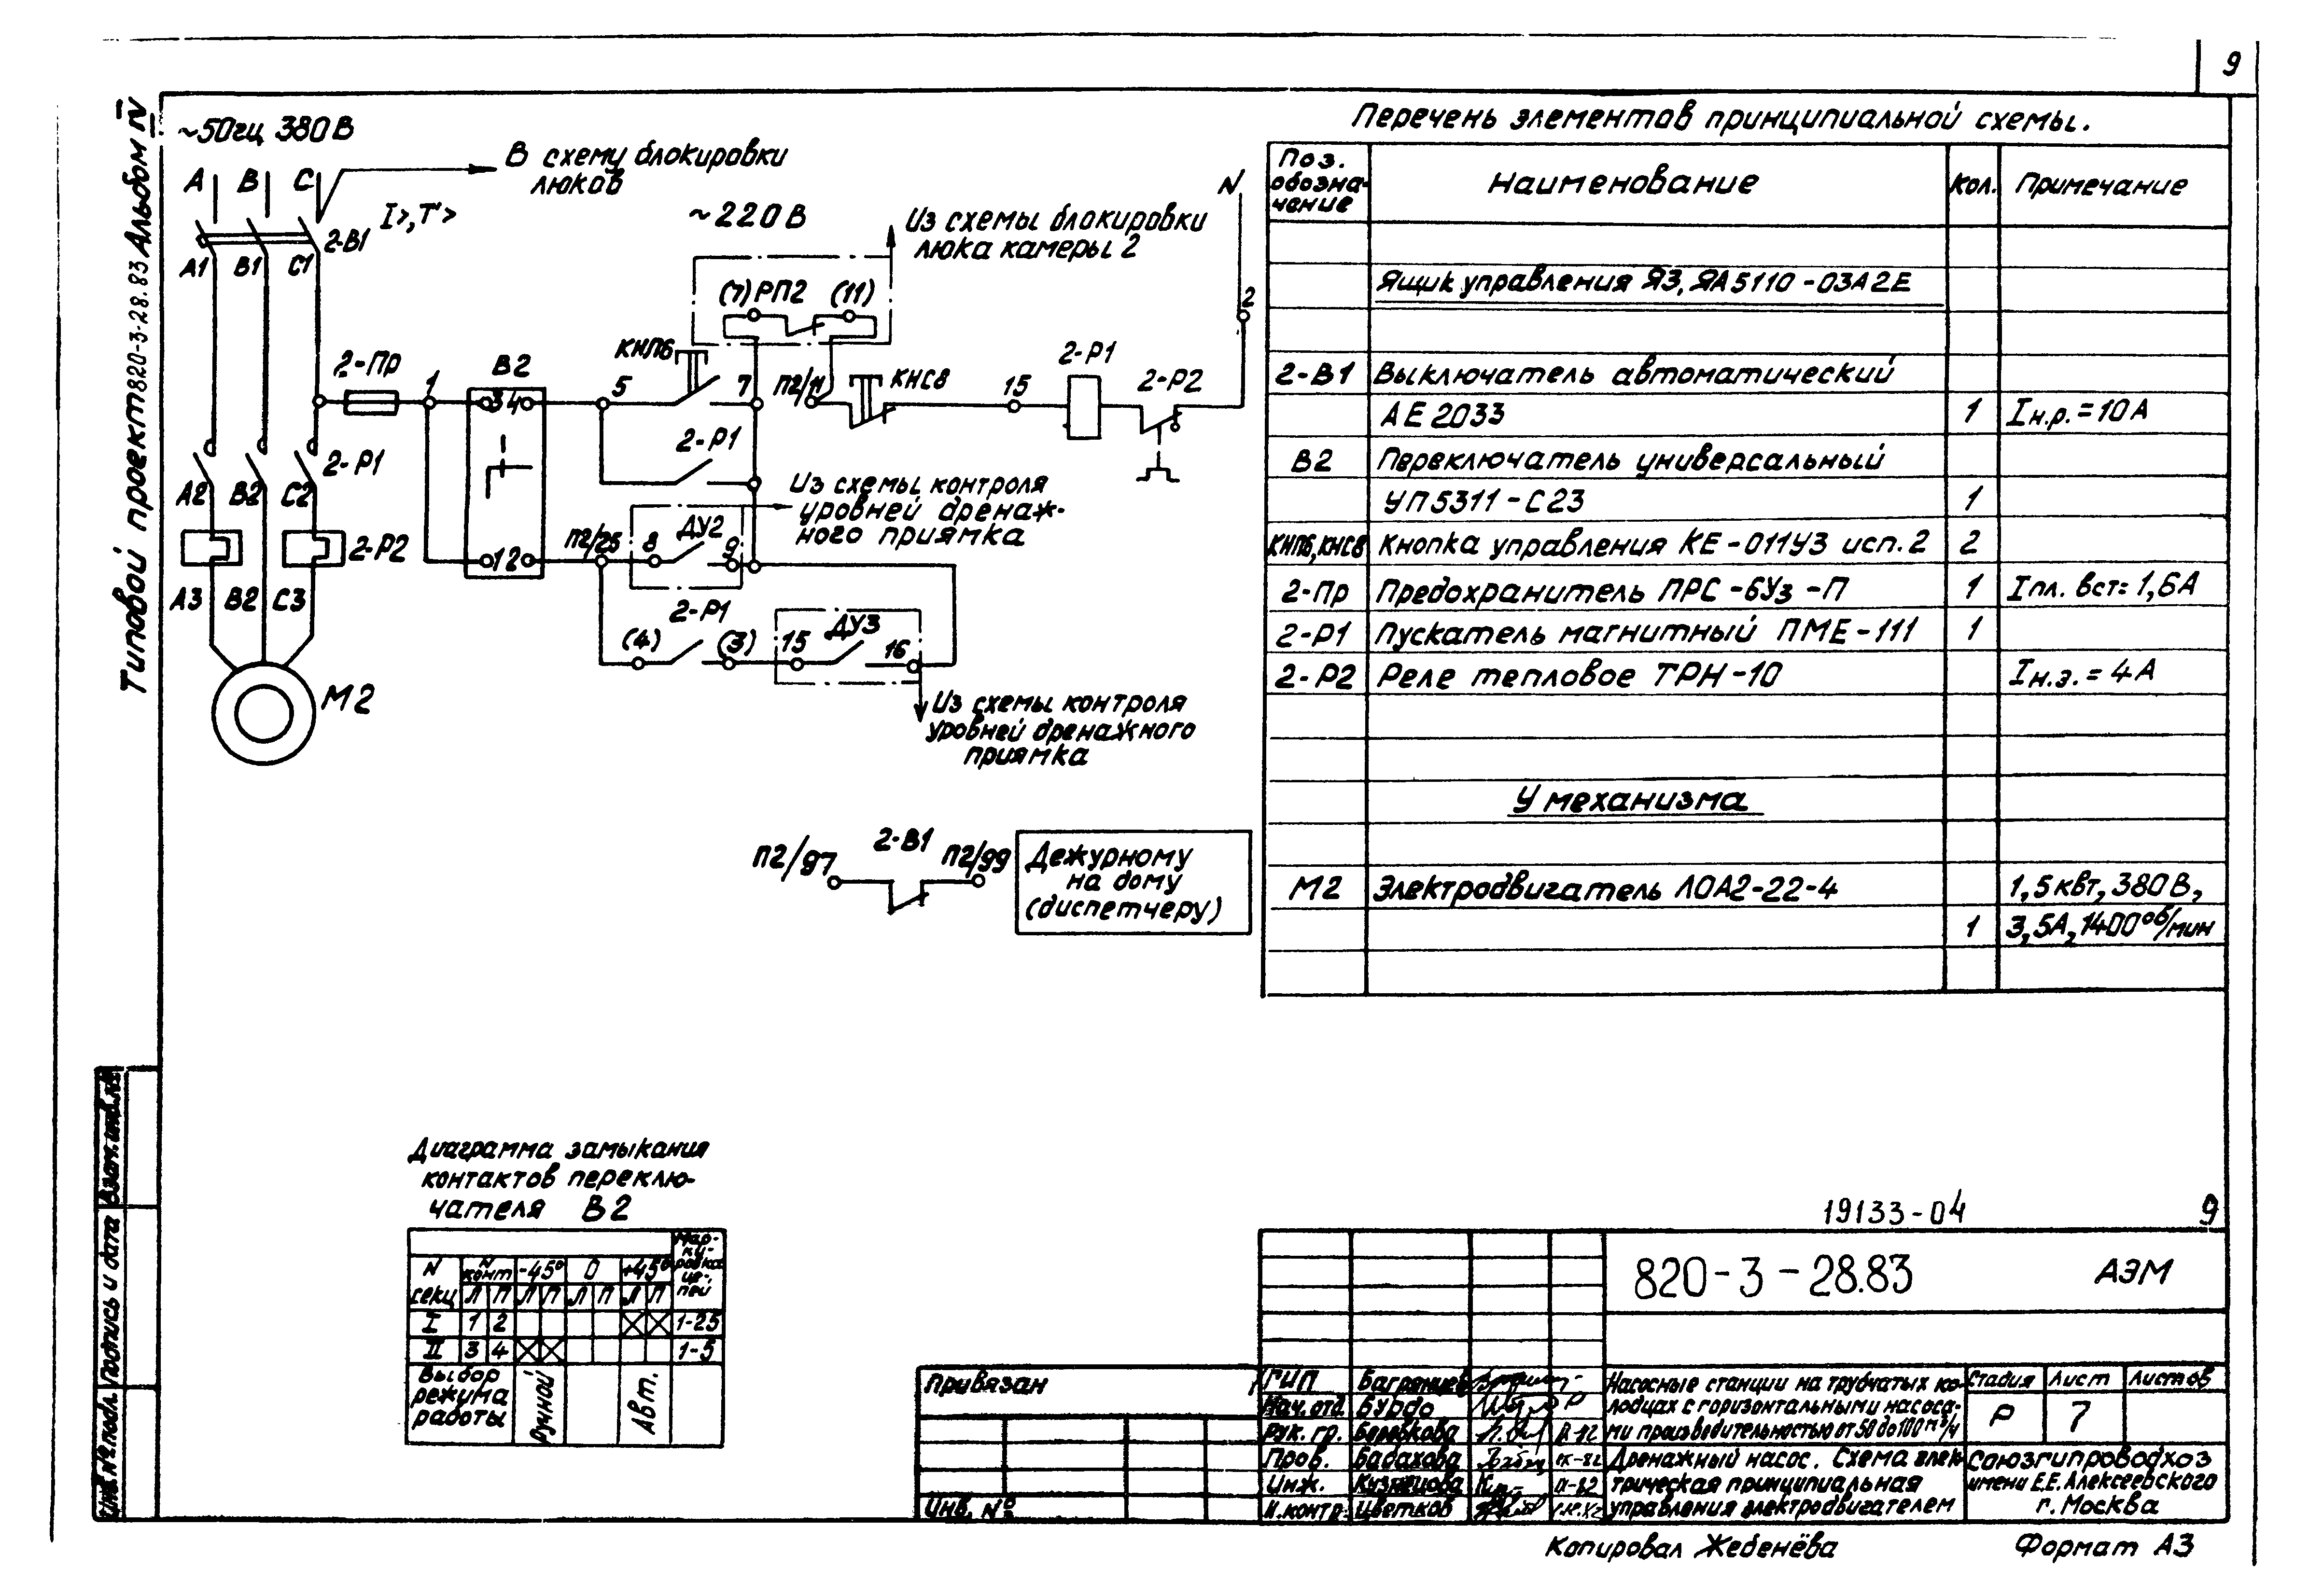 9
Типовой проект 820-3-28.83 Альбом IV
~50гц 380В
А В С
В схему блокировки
люков
I>,Т°>
2-В1
А1 В1 С1
~220В
Из схемы блокировки
люка камеры 2
N
2
(7) РП2 (11)
2-Пр
1
В2
3 4
5
КНП6
7
П2/11
КНС8
15
2-Р1
2-Р2
2-Р1
2-Р1
А2 В2 С2
2-Р2
Из схемы контроля
уровней дренаж-
ного приямка
1 2
П2/25
8 ДУ2 9
А3 В2 С3
2-Р1
(4) (3)
15 ДУ3 16
М2
Из схемы контроля
уровней дренажного
приямка
П2/97
2-В1
П2/99
Дежурному
на дому
(диспетчеру)
Перечень элементов принципиальной схемы.
Поз. обозна-чение Наименование Кол. Примечание
Ящик управления ЯЗ, ЯА5110-03А2Е
2-В1 Выключатель автоматический
АЕ2033 1 Iн.р.=10А
В2 Переключатель универсальный
УП5311-С23 1
КНП6,КНС8 Кнопка управления КЕ-011У3 исп.2 2
2-Пр Предохранитель ПРС-6У3-П 1 Iпл. вст=1,6А
2-Р1 Пускатель магнитный ПМЕ-111 1
2-Р2 Реле тепловое ТРН-10 Iн.э.=4А
У механизма
М2 Электродвигатель ЛОА2-22-4 1,5квт,380В,
1 3,5А,1400об/мин
Диаграмма замыкания
контактов переклю-
чателя В2
N секц N конт -45° 0 +45° Мар-ки-ровка це-пей
Л П Л П Л П Л П
I 1 2 1-25
II 3 4 1-5
Выбор
режима
работы
Ручной
Авт.
Взам. инв.№
Подпись и дата
Инв.№подл.
19133-04 9
820-3-28.83 АЭМ
Привязан
Инв. №
ГИП Багрянцев
Нач.отд. Бурдо
Рук. гр. Беревкова
Пров. Бадахова IX-82
Инж. Кузнецова IX-82
Н.контр. Цветков
Насосные станции на трубчатых ко-
лодцах с горизонтальными насоса-
ми производительностью от 50 до 100 м³/ч
Стадия Лист Листов
Р 7
Дренажный насос. Схема элек-
трическая принципиальная
управления электродвигателем
Союзгипроводхоз
имени Е.Е.Алексеевского
г. Москва
Копировал Жебенёва
Формат А3